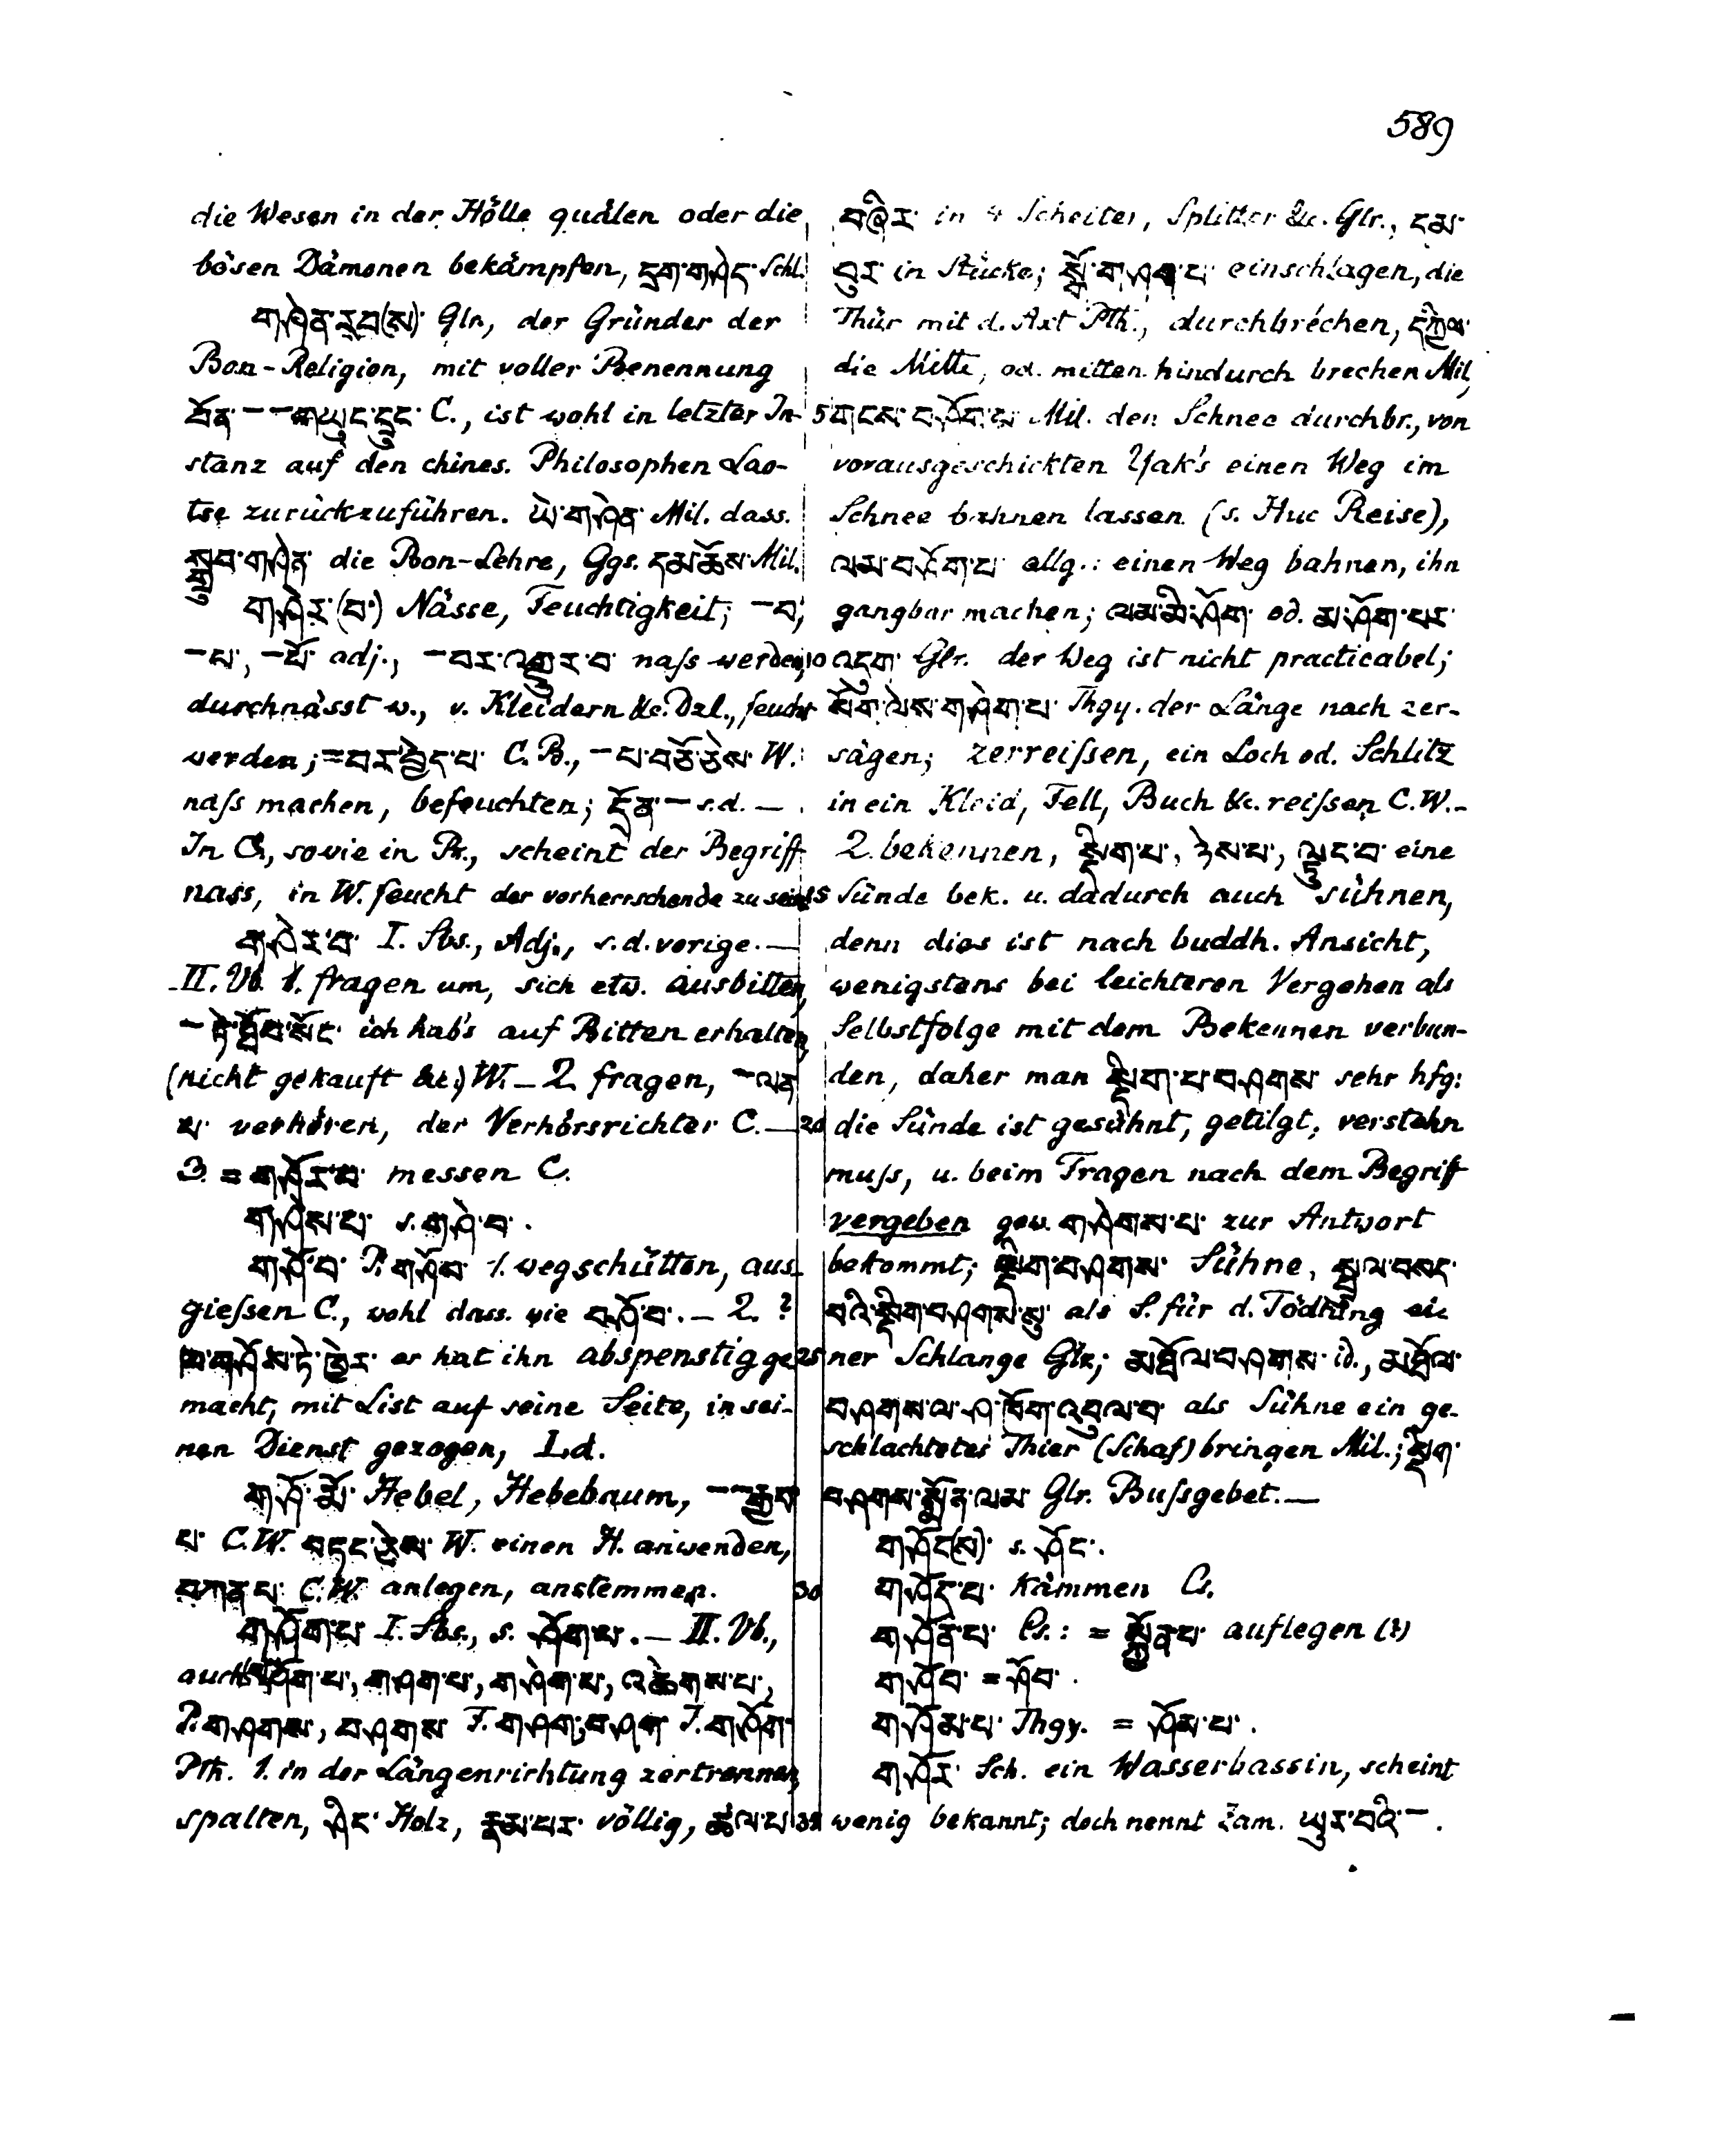 589
die Wesen in der Hölle quälen oder die
bösen Dämonen bekämpfen, དྲག་གཤེད་ Schl.
གཤེན་རབ(ས)་ Glr, der Gründer der
Bon-Religion, mit voller Benennung
བོན་ – – གཡུང་དྲུང་ C., ist wohl in letzter In-
stanz auf den chines. Philosophen Lao-
tse zurückzuführen. ཡེ་གཤེན་ Mil. dass.
སྒྲུབ་གཤེན་ die Bon-Lehre, Ggs. དམ་ཆོས་ Mil.
གཤེར་(བ་) Nässe, Feuchtigkeit; – བ,
– པ་, – པོ་ adj., – བར་འགྱུར་བ་ naſs werden,
durchnässt w., v. Kleidern &c. Dzl., feucht
werden; = བར་བྱེད་པ་ C. B., – པ་བཅོ་ཅེས་ W.
naſs machen, befeuchten; དྲོན་ – s.d. —
In C., sowie in Pr., scheint der Begriff
nass, in W. feucht der vorherrschende zu sein.
གཤེར་བ་ I. Sbs., Adj., s.d. vorige. —
II. Vb. 1. fragen um, sich etw. ausbitten,
– ཏེ་ཐོབ་སོང་ ich hab's auf Bitten erhalten,
(nicht gekauft &c.) W. – 2. fragen, – ལན་
པ་ verhören, der Verhörsrichter C. —
3. = གཤོར་བ་ messen C.
གཤེས་པ་ s. གཤེ་བ་.
གཤོ་བ་ P. གཤོས་ 1. wegschütten, aus-
gieſsen C., wohl dass. wie བཤོ་བ་. – 2. ?
གཤོས་ཏེ་ཁྱེར་ er hat ihn abspenstig ge-
macht, mit List auf seine Seite, in sei-
nen Dienst gezogen, Ld.
གཤོ་མོ་ Hebel, Hebebaum, – – རྒྱབ་
པ་ C.W. བཏང་ཅེས་ W. einen H. anwenden,
C.W. anlegen, anstemmen.
གཤོག་པ་ I. Sbs., s. ཤོག་པ་. – II. Vb.,
auch གཤོག་པ་, གཤག་པ་, གཤེག་པ་, འཆེགས་པ་,
P. གཤགས་, བཤགས་ F. གཤག་, བཤག་ J. གཤོག་
Pth. 1. in der Längenrichtung zertrennen,
spalten, ཤིང་ Holz, རྣམ་པར་ völlig, ཚལ་པ་
བཞིར་ in 4 Scheiter, Splitter &c. Glr., དམ་
བུར་ in Stücke; སྒོ་གཤག་པ་ einschlagen, die
Thür mit d. Axt Pth., durchbréchen, དཀྱིལ་
die Mitte, od. mitten hindurch brechen Mil,
5 གངས་བཤོག་པ་ Mil. den Schnee durchbr., von
vorausgeschickten Yak's einen Weg im
Schnee bahnen lassen (s. Huc Reise),
ལམ་བཤོག་པ་ allg.: einen Weg bahnen, ihn
gangbar machen; ལམ་མི་ཤོག་ od. མ་ཤོག་པར་
10 འདུག་ Glr. der Weg ist nicht practicabel;
སོག་ལེས་གཤེག་པ་ Thgy. der Länge nach zer-
sägen; zerreiſsen, ein Loch od. Schlitz
in ein Kleid, Fell, Buch &c. reiſsen C.W. –
2. bekennen, སྡིག་པ་, ཉེས་པ་, ལྟུང་བ་ eine
15 Sünde bek. u. dadurch auch sühnen,
denn dies ist nach buddh. Ansicht,
wenigstens bei leichteren Vergehen als
Selbstfolge mit dem Bekennen verbun-
den, daher man སྡིག་པ་བཤགས་ sehr hfg:
20 die Sünde ist gesühnt, getilgt, verstehn
muſs, u. beim Fragen nach dem Begriff
vergeben gew. གཤེགས་པ་ zur Antwort
bekommt; སྡིག་བཤགས་ Sühne, སྦྲུལ་བསད་
པའི་སྡིག་བཤགས་སུ་ als S. für d. Tödtung ei-
25 ner Schlange Glr; མཐོལ་བཤགས་ id., མཐོལ་
བཤགས་ལ་ཤ་ཐོག་འབུལ་བ་ als Sühne ein ge-
schlachtetes Thier (Schaf) bringen Mil.; སྡིག་
བཤགས་སྨོན་ལམ་ Glr. Buſsgebet. —
གཤོང(ས)་ s. ཤོང་.
30 གཤོད་པ་ kämmen Cs.
གཤོན་པ་ Cs.: = སྐྱོན་པ་ auflegen (?)
གཤོབ་ = ཤོབ་.
གཤོམ་པ་ Thgy. = ཤོམ་པ་.
གཤོར་ Sch. ein Wasserbassin, scheint
35 wenig bekannt; doch nennt Žam. ཡུར་བའི་ – .